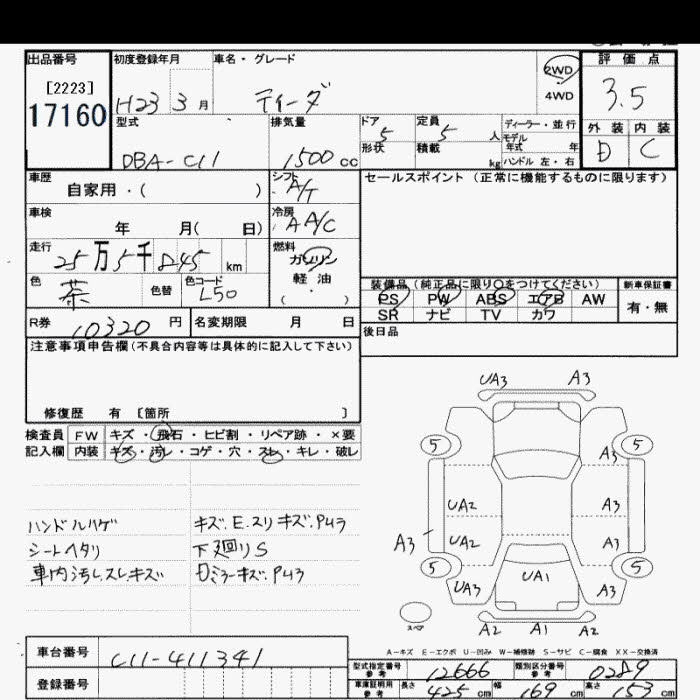 出品番号 初度登録年月 車名・グレード 2WD 評価点
[2223] 4WD 3.5
17160 H23 3月 ティーダ
型式 排気量 ドア 定員 ディーラー・並行 外装 内装
DBA-C11 1500cc 5 5人 モデル年式 年 D C
形状 積載 kg ハンドル 左・右
車歴 自家用・( ) シフト A/T セールスポイント(正常に機能するものに限ります)
車検 年 月( 日) 冷房 A A/C
走行 25万5千845km 燃料 ガソリン
軽油
( ・ )
色 茶 色替 色コード L50 装備品(純正品に限り○をつけてください) 新車保証書
PS PW ABS エアB AW 有・無
SR ナビ TV カワ
R券 10320円 名変期限 月 日 後日品
注意事項申告欄(不具合内容等は具体的に記入して下さい)
修復歴 有 [箇所 ]
検査員 FW キズ・飛石・ヒビ割・リペア跡・×要
記入欄 内装 キズ・汚レ・コゲ・穴・スレ・キレ・破レ
ハンドルハゲ キズ.E.スリキズ.Pイラ
シートヘタリ 下廻りS
車内汚レスレキズ
UA3 A3
5 5
A3
UA2 A3
A3 UA2 A3
5 5
UA3 UA1 A3
スペア A2 A1 A2
A-キズ E-エクボ U-凹み W-補修跡 S-サビ C-腐食 XX-交換済
車台番号 C11-411341
型式指定番号 参考 12666 類別区分番号 参考 0289
登録番号 車庫証明用 参考 長さ 425cm 幅 169cm 高さ 153cm